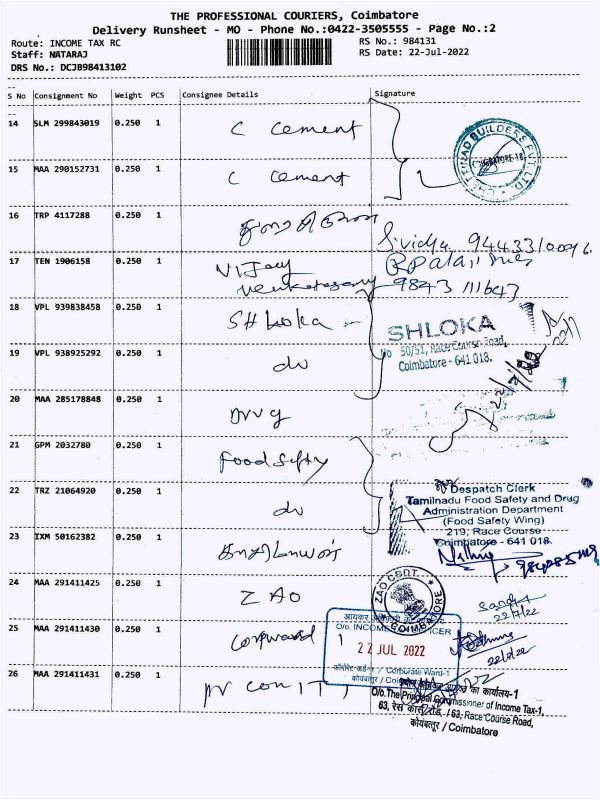 THE PROFESSIONAL COURIERS, Coimbatore
Delivery Runsheet - MO - Phone No.:0422-3505555 - Page No.:2
Route: INCOME TAX RC
RS No.: 984131
Staff: NATARAJ
RS Date: 22-Jul-2022
DRS No.: DCJB98413102
S No Consignment No Weight PCS Consignee Details Signature
14 SLM 299843019 0.250 1 C Cement
15 MAA 290152731 0.250 1 C Cement
CHETTINAD BUILDERS PVT LTD
16 TRP 4117288 0.250 1
17 TEN 1906158 0.250 1 Vijay
9843 111643
18 VPL 939838458 0.250 1 Shloka
SHLOKA
No 50/51, Race Course Road,
Coimbatore - 641 018.
19 VPL 938925292 0.250 1 do
20 MAA 285178848 0.250 1 Drug
21 GPM 2032780 0.250 1 Food Safty
22 TRZ 21064920 0.250 1 do
Despatch Clerk
Tamilnadu Food Safety and Drug
Administration Department
(Food Safety Wing)
219, Race Course
Coimbatore - 641 018.
23 IXM 50162382 0.250 1
24 MAA 291411425 0.250 1 ZAO
ZAO CBDT,
COIMBATORE
22/7/22
25 MAA 291411430 0.250 1 Corpward 1
O/o. INCOME
22 JUL 2022
Corporate Ward-1
22/7/22
26 MAA 291411431 0.250 1 Pr Con IT 1
का कार्यालय-1
O/o. The Principal Commissioner of Income Tax-1,
63, रेस कोर्स रोड, / 63, Race Course Road,
कोयंबटूर / Coimbatore